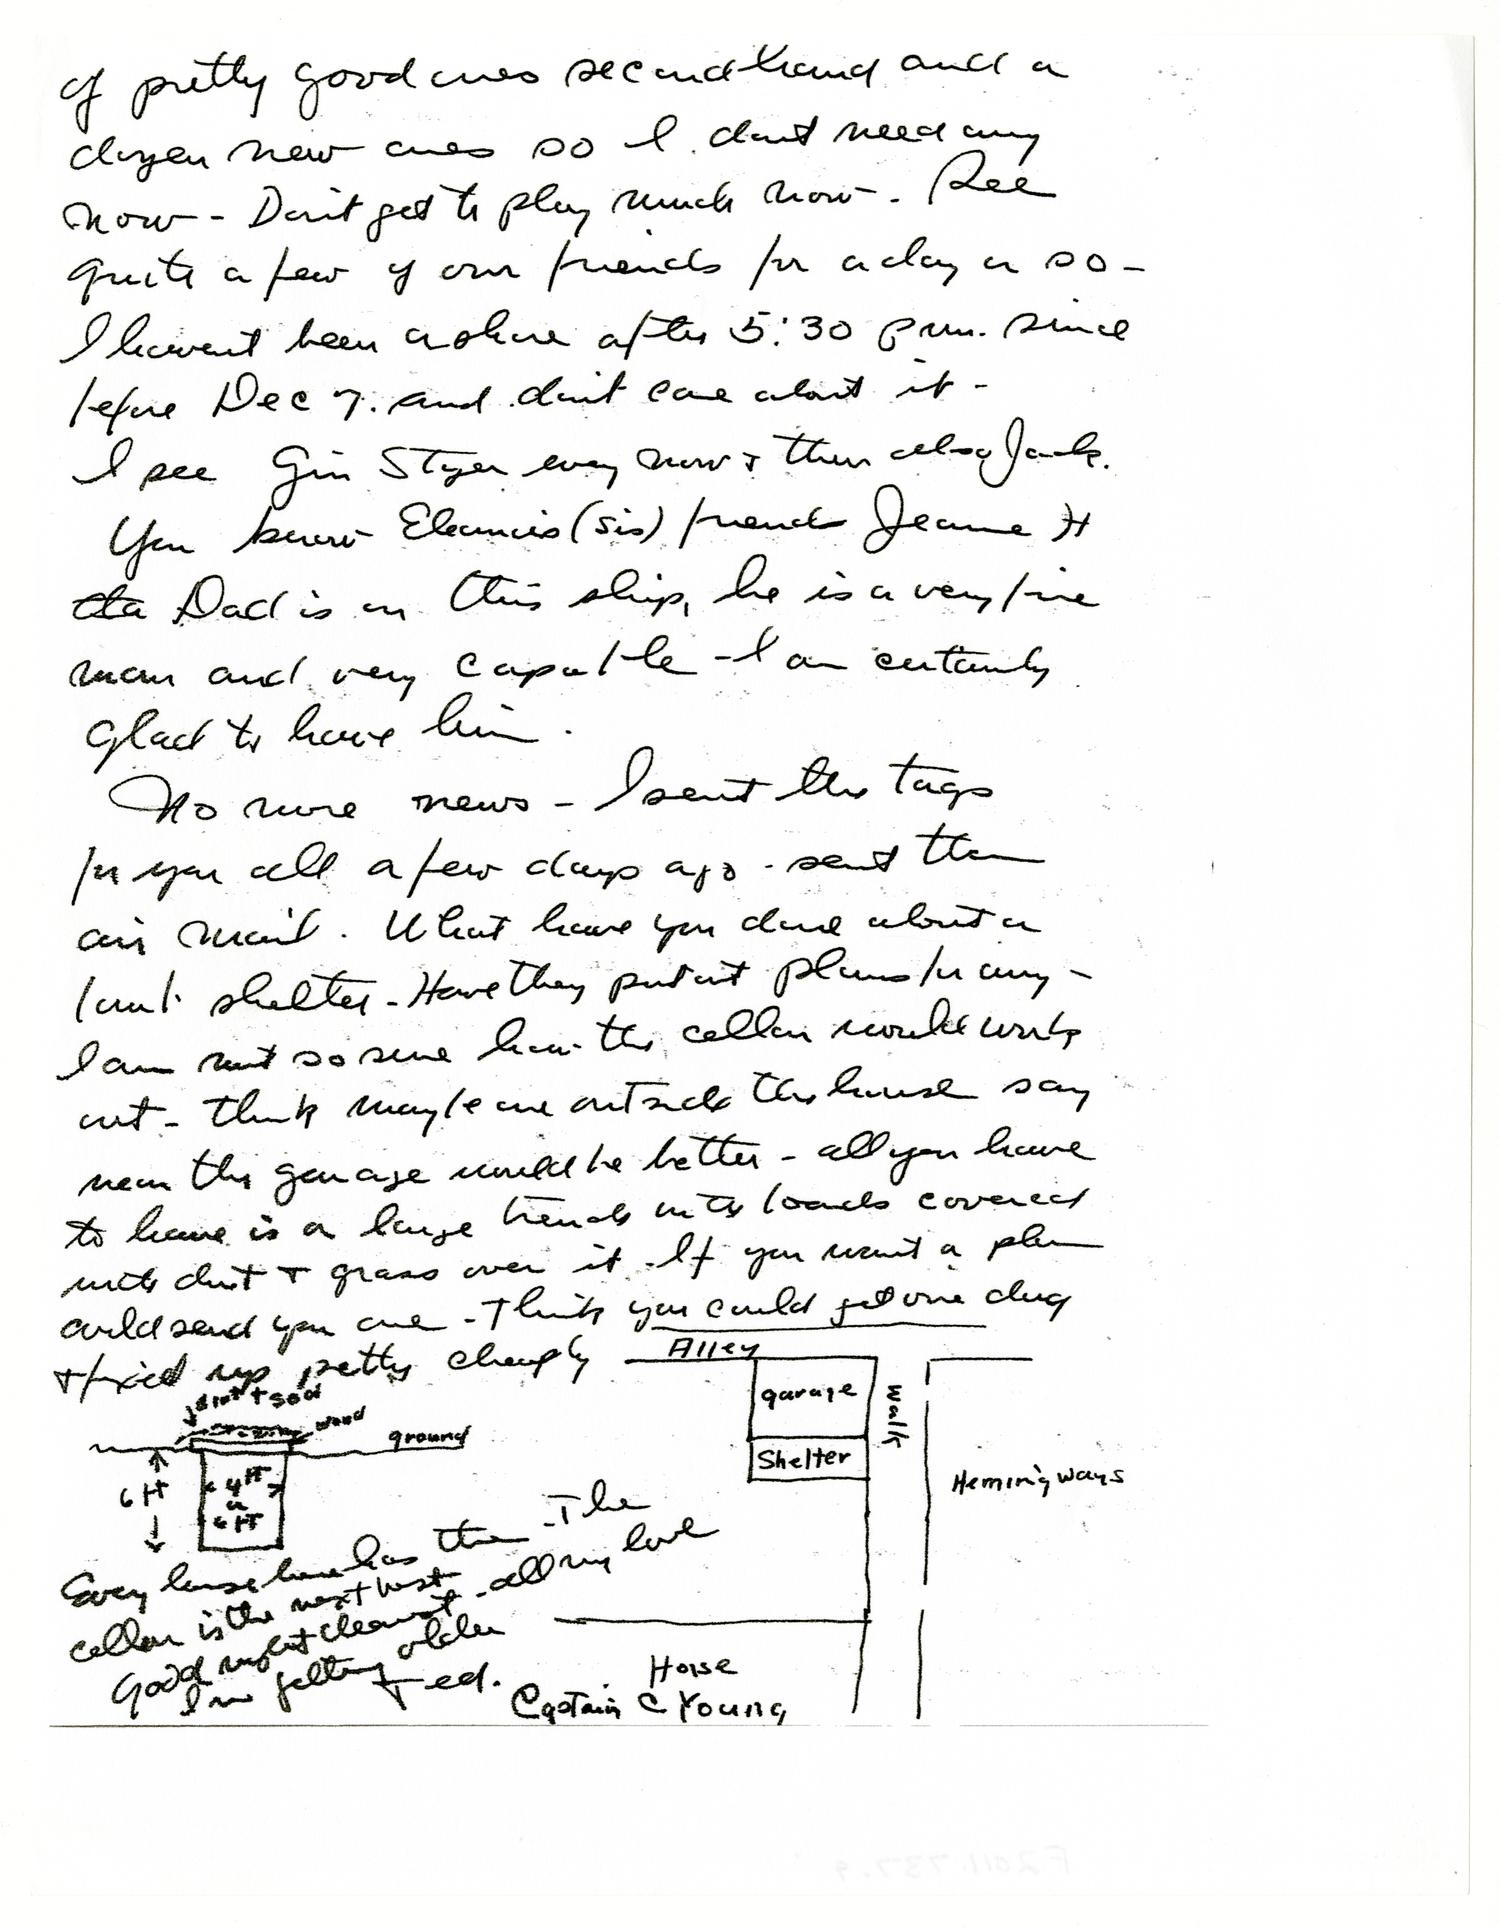 of pretty good ones second hand and a
dozen new ones so I dont need any
now - Don't get to play much now - See
quite a few of our friends for a day or so -
I havent been ashore after 5:30 p.m. since
before Dec 7. and don't care about it -
I see Gin Styer every now & then also Jack.
You know Eleanors (sis) friends Jeanne H
Dad is on this ship, he is a very fine
man and very capable - I am certainly
glad to have him.
No more news - I sent the tags
for you all a few days ago - sent them
air mail. What have you done about a
bomb shelter - Have they put out plans for any -
I am not so sure how the cellar would work
out - think maybe one outside the house say
near the garage would be better - all you have
to have is a large trench with boards covered
with dirt & grass over it - If you want a plan
could send you one - Think you could get one dug
& fixed up pretty cheaply
Alley
garage
Walk
Shelter
Hemingways
dirt + sod
wood
ground
6 ft
4 FT
or
6 FT
Every house here has them - The
cellar is the next best
Good night dearest - all my love
I'm getting older
Ted.
House
Captain C Young
F2011.737.9